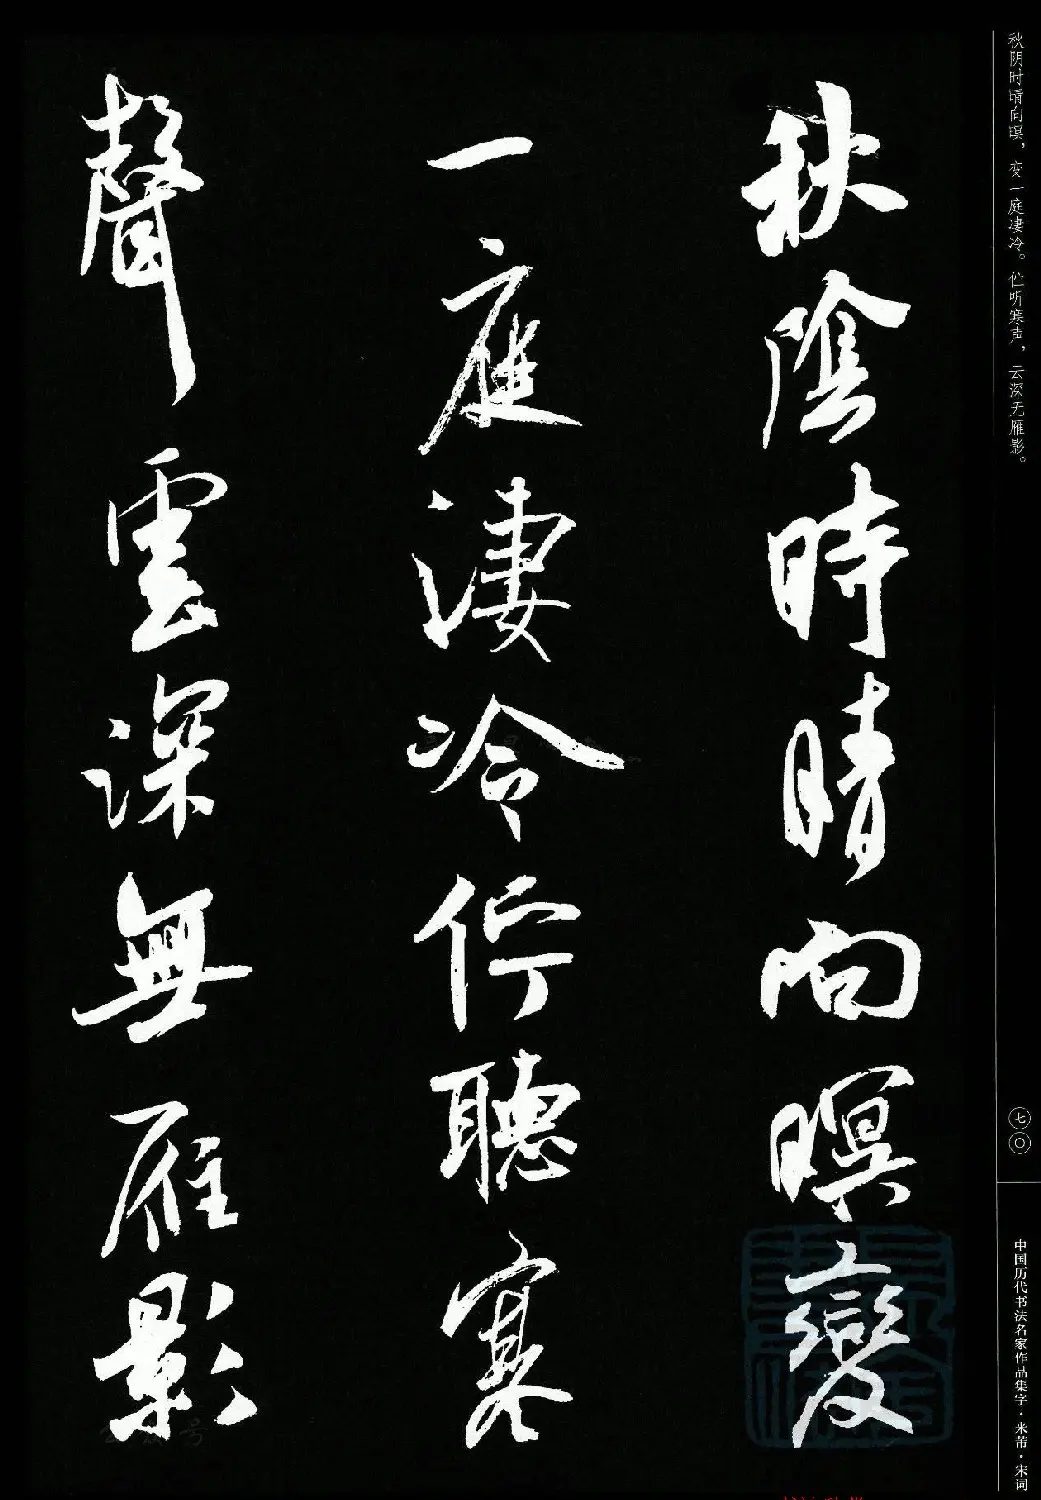 秋阴时晴向暝，变一庭凄冷。伫听寒声，云深无雁影。
秋陰時晴向暝變
一庭淒冷佇聽寒
聲雲深無雁影
七〇
中国历代书法名家作品集字·米芾·宋词